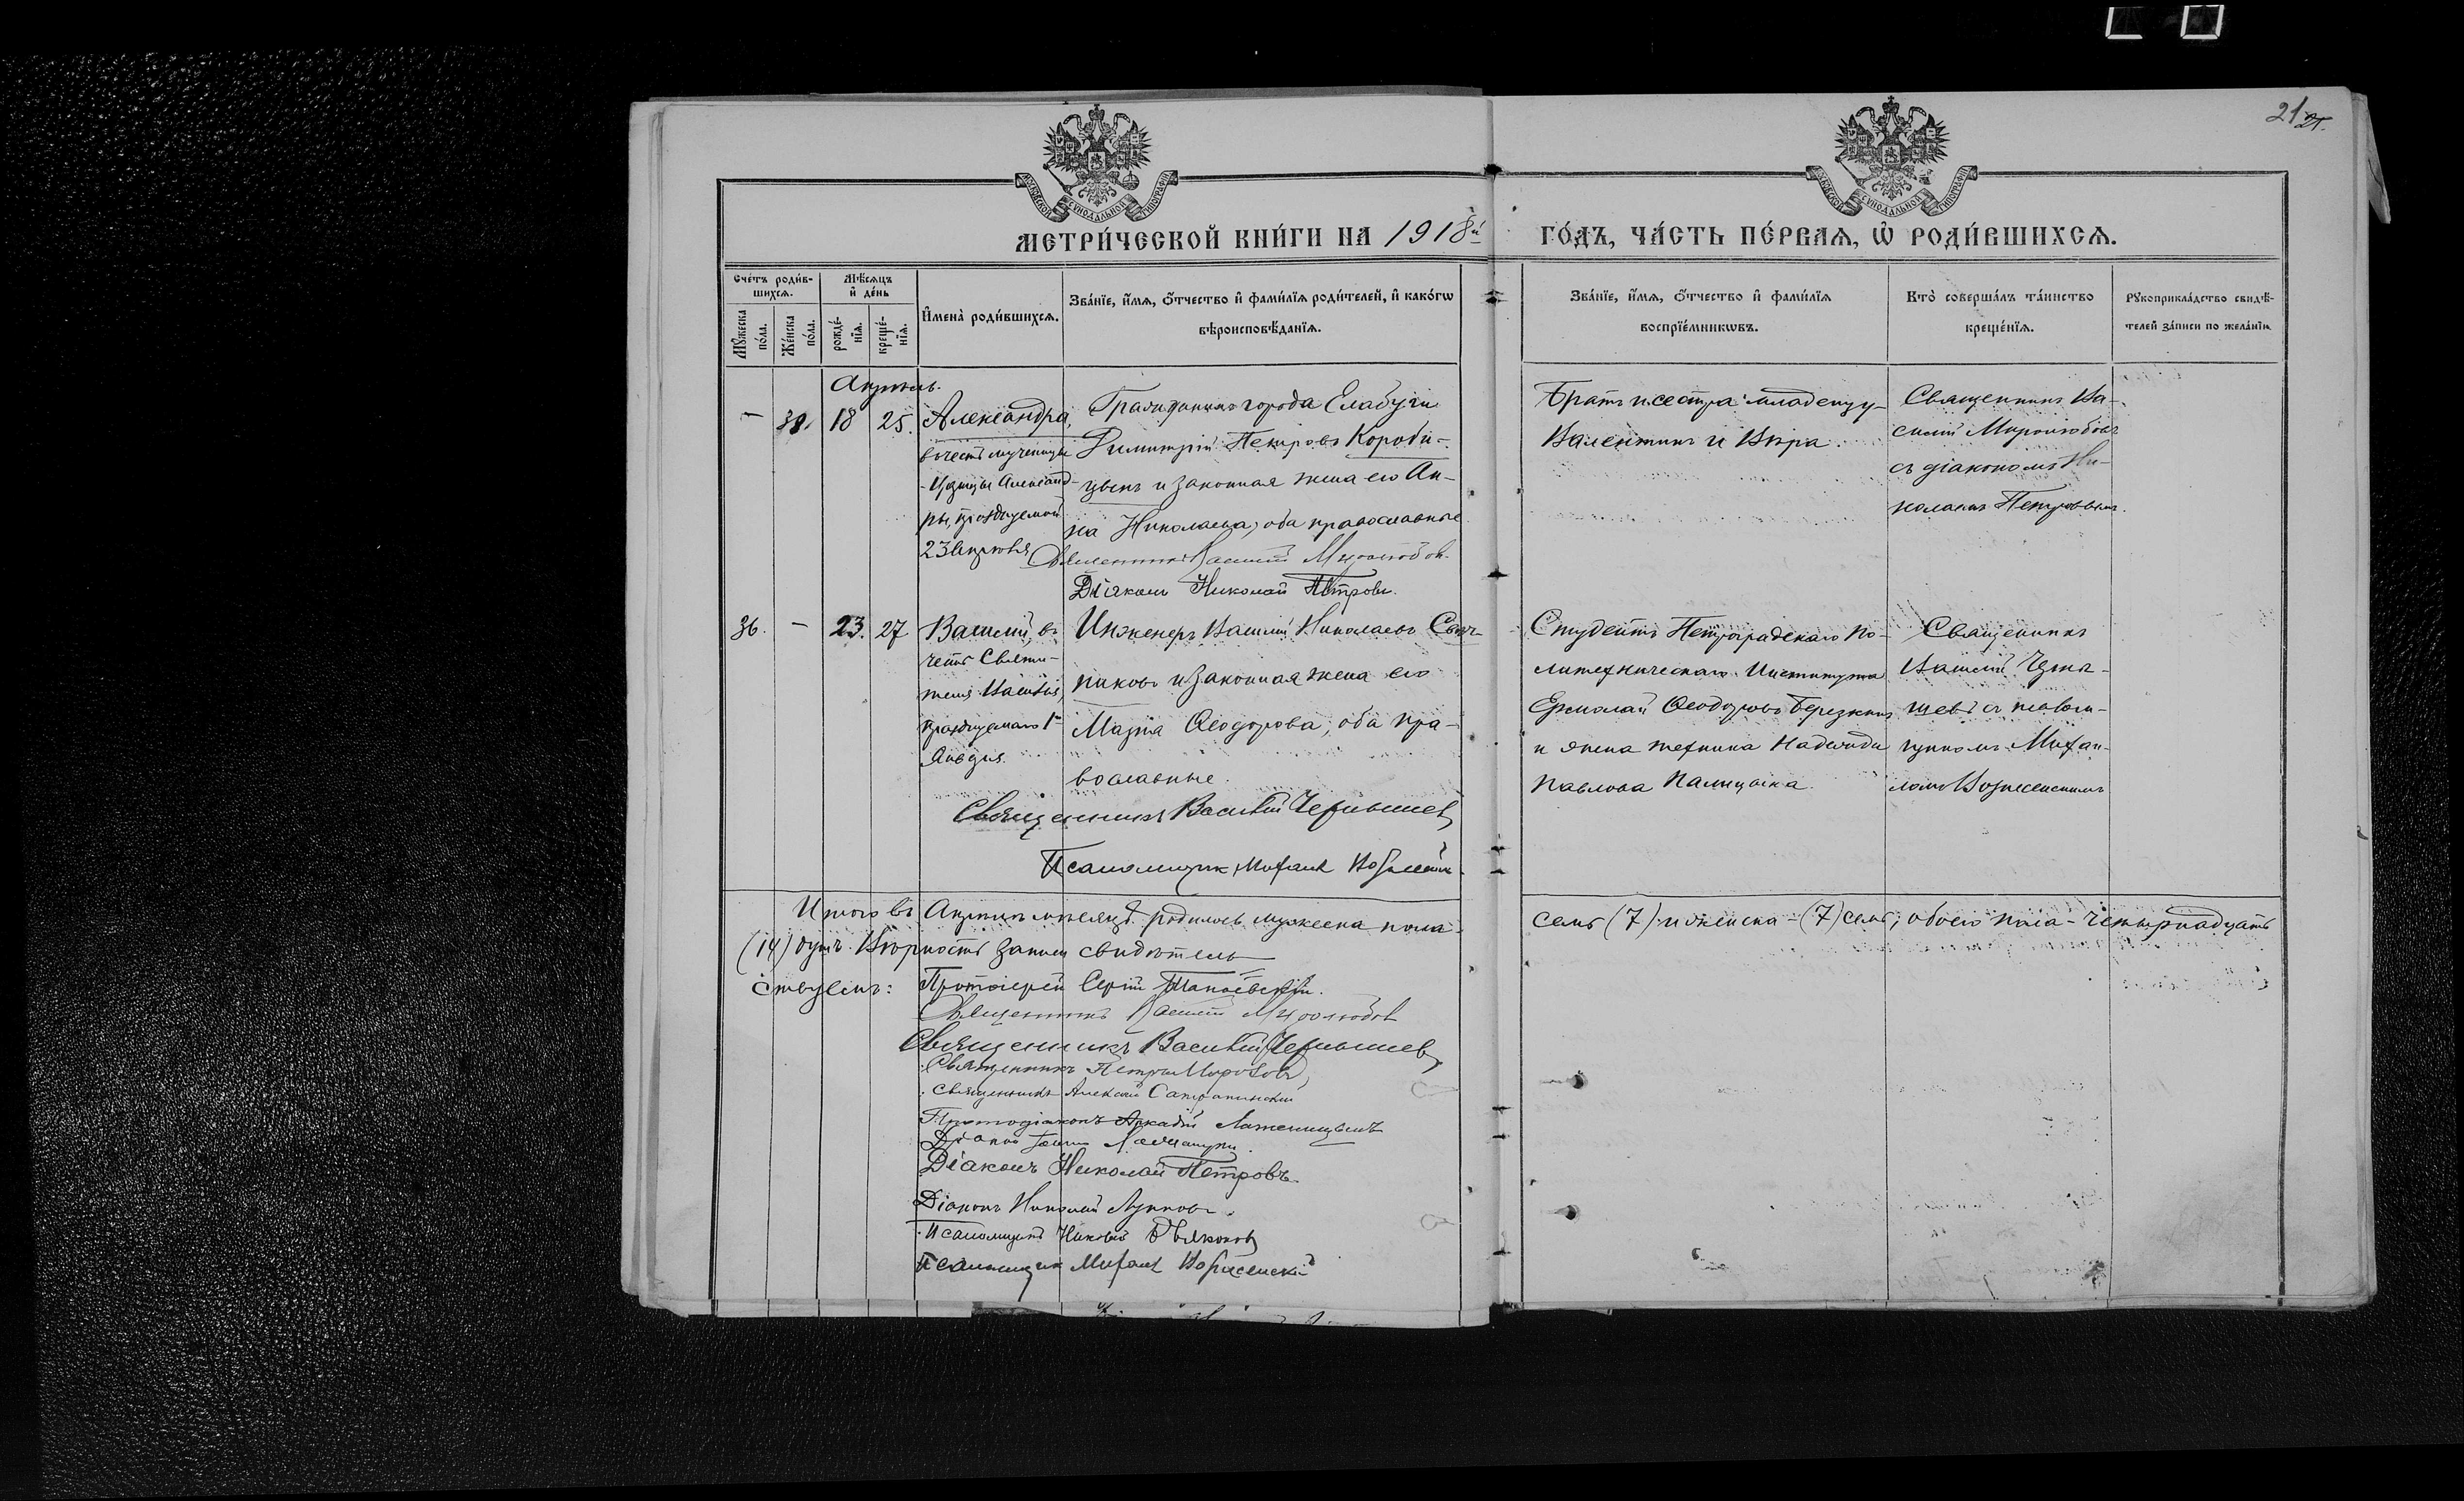 21
МЕТРИ́ЧЕСКОЙ КНИ́ГИ НА 1918й ГО́ДЪ, ЧА́СТЬ ПЕ́РВАЯ, Ѽ РОДИ́ВШИХСЯ.
Сче́тъ роди́в-
шихся.
Мѣ́сяцъ
и҆ де́нь
Мꙋ́жеска
по́ла.
Же́нска
по́ла.
рожде́-
нїя.
креще́-
нїя.
И҆мена̀ роди́вшихся.
Зва́нїе, и҆́мя, о҆́тчество и҆ фами́лїя роди́телей, и҆ како́гѡ
вѣроисповѣ́данїя.
Зва́нїе, и҆́мя, о҆́тчество и҆ фами́лїя
воспрїе́мникѡвъ.
Кто̀ соверша́лъ та́инство
креще́нїя.
Рꙋкоприкла́дство свидѣ́-
телей за́писи по жела́нїю.
Апрѣль.
– 38. 18 25. Александра,
въ честь мученицы
Царицы Александ-
ры, празднуемой
23 Апрѣля
Гражданинъ города Елабуги
Димитрій Петровъ Короби-
цынъ и законная жена его Ан-
на Николаева, оба православные
Священникъ Василій Миролюбовъ.
Діаконъ Николай Петровъ.
Братъ и сестра младенцу
Валентинъ и Вѣра.
Священникъ Ва-
силій Миролюбовъ
съ діакономъ Ни-
колаемъ Петровымъ.
36. – 23. 27 Василій, въ
честь Святи-
теля Василія,
празднуемаго 1го
Января.
Инженеръ Василій Николаевъ
и законная жена его
Марія Ѳеодорова, оба пра-
вославные.
Священникъ Василій Чернышевъ
Псаломщик Михаил Вознесенскій
Студентъ Петроградскаго По-
литехническаго Института
Ермолай Ѳеодоровъ Березкинъ
и жена техника Надежда
Павлова Палицына.
Священникъ
Василій Черны-
шевъ съ псалом-
щикомъ Михаи-
ломъ Вознесенскимъ
Итого въ Апрѣлѣ мѣсяцѣ родилось мужеска пола семь (7) и женска – (7) семь, обоего пола – четырнадцать
(14) душъ. Вѣрность записи свидѣтель-
ствуемъ:
Протоіерей Сергій
Священникъ Василій Миролюбовъ
Священникъ Василій Чернышевъ
Священникъ Петръ
Священникъ Алексій
Протодіаконъ Аркадій
Діаконъ
Діаконъ Николай Петровъ.
Діаконъ Николай
Псаломщикъ Дьяконовъ
Псаломщик Михаил Вознесенскій